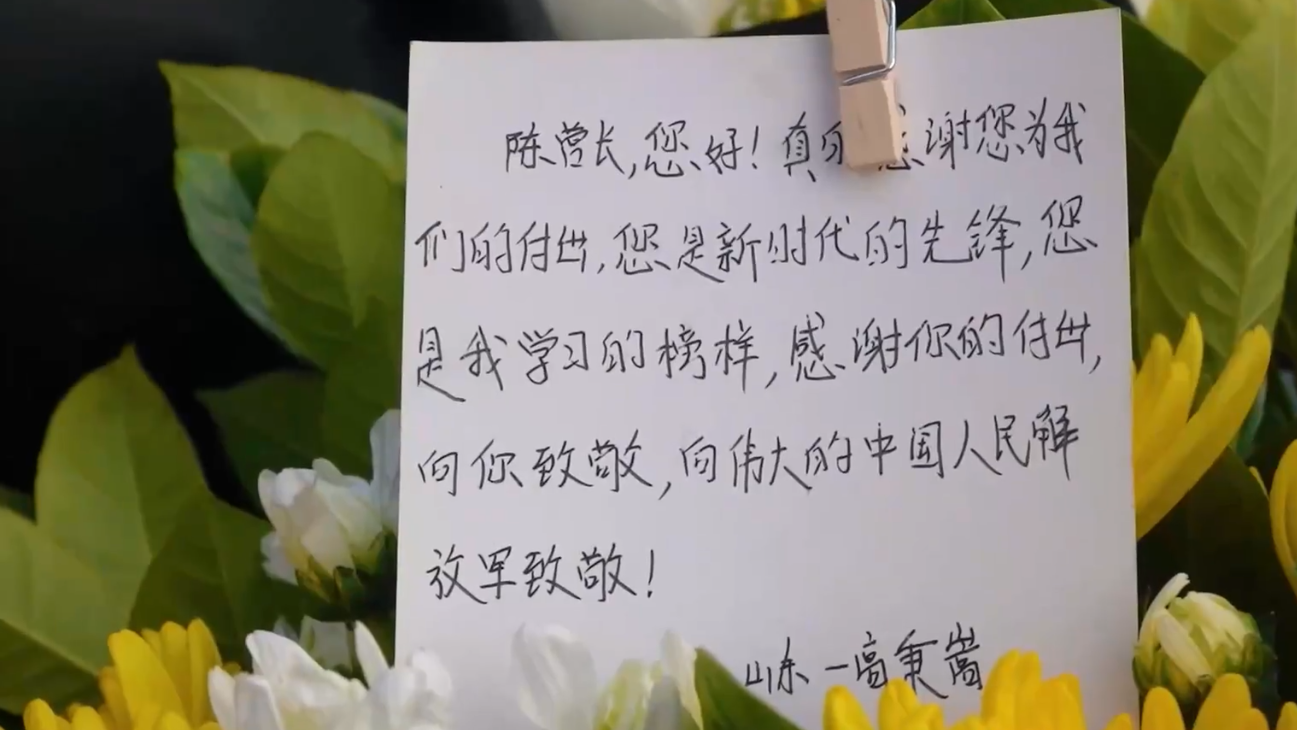 陈营长,您好!真的感谢您为我
们的付出,您是新时代的先锋,您
是我学习的榜样,感谢你的付出,
向你致敬,向伟大的中国人民解
放军致敬!
山东—高秉嵩